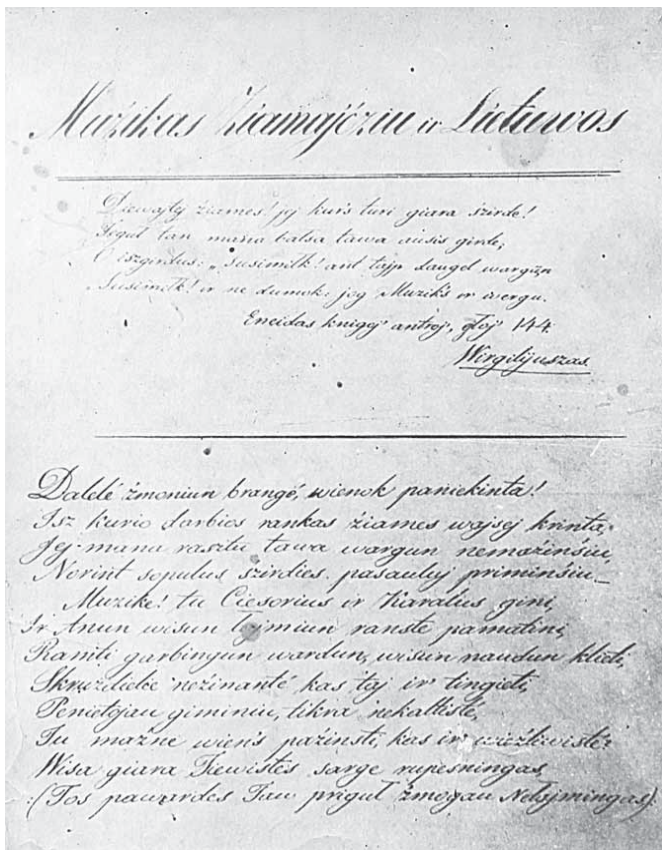 Muźikas Ziamajćziu ir Lietuwos
Diewajtej źiames! jej kurs turi giara szirdę!
Tegul tan mana balsa tawa ausis girdę;
O iszgirdus: „Susimilk! ant tajp daugel wargun
„Susimilk! ir ne dumok: jog Muzik's ir wergu.
Eneidas knigoj' antroj', głoj' 144
Wirgilijuszas.
Dalelé źmoniun brangé, wienok paniekinta!
Isz kurio darbios rankas źiames wajsej krinta,
Jej manu rasztu tawa wargun nemaźinśiu,
Norint sopulus szirdies pasauluj priminśiu_
Muzike! tu Ciesorius ir Karalus gini,
Ir Anun wisun łajmiun ranste pamatini,
Ramti garbingun wardun, wisun naudun kleti,
Skruzdiele neźinanté kas taj ir tingieti,
Penietojau giminiu, tikra nekaltisté,
Tu maźne wien's paźinsti, kas ir wieźliwisté?
Wisa giara Tiewistes sarge rupesningas,
(Tos pawardes Taw prigul źmogau Nełajmingas).